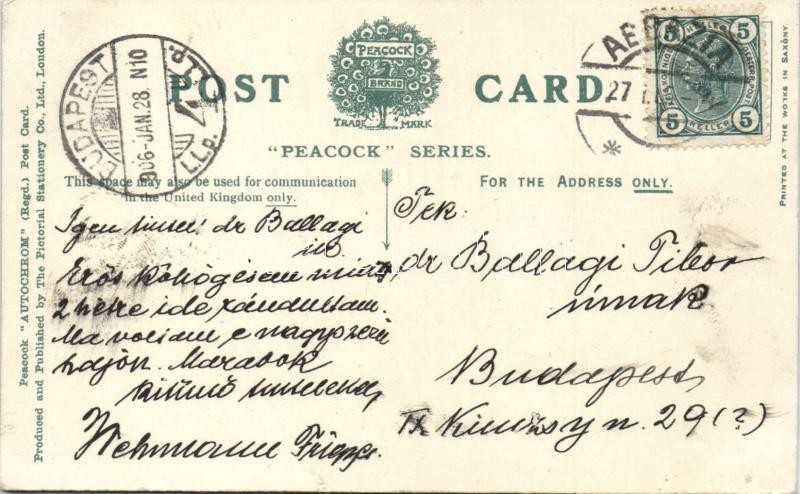 Peacock "AUTOCHROM" (Regd.) Post Card.
Produced and Published by The Pictorial Stationery Co., Ltd., London.
BUDAPEST
906-JAN.28. N10
POST CARD.
PEACOCK
BRAND
TRADE MARK
"PEACOCK" SERIES.
ABBAZIA
27
5 5
5 HELLER 5
PRINTED AT THE WORKS IN SAXONY.
This space may also be used for communication
in the United Kingdom only.
FOR THE ADDRESS ONLY.
Igen tisztelt dr Ballagi
úr
Erős köhögésem miatt
2 hétre ide rándultam.
Ma voltam e nagyszerű
hajón. Maradok
kitűnő tisztelettel
Wehrmann Frigyes.
Tek.
dr Ballagi Tibor
úrnak
Budapest
IX. Kinizsy u. 29 (?)